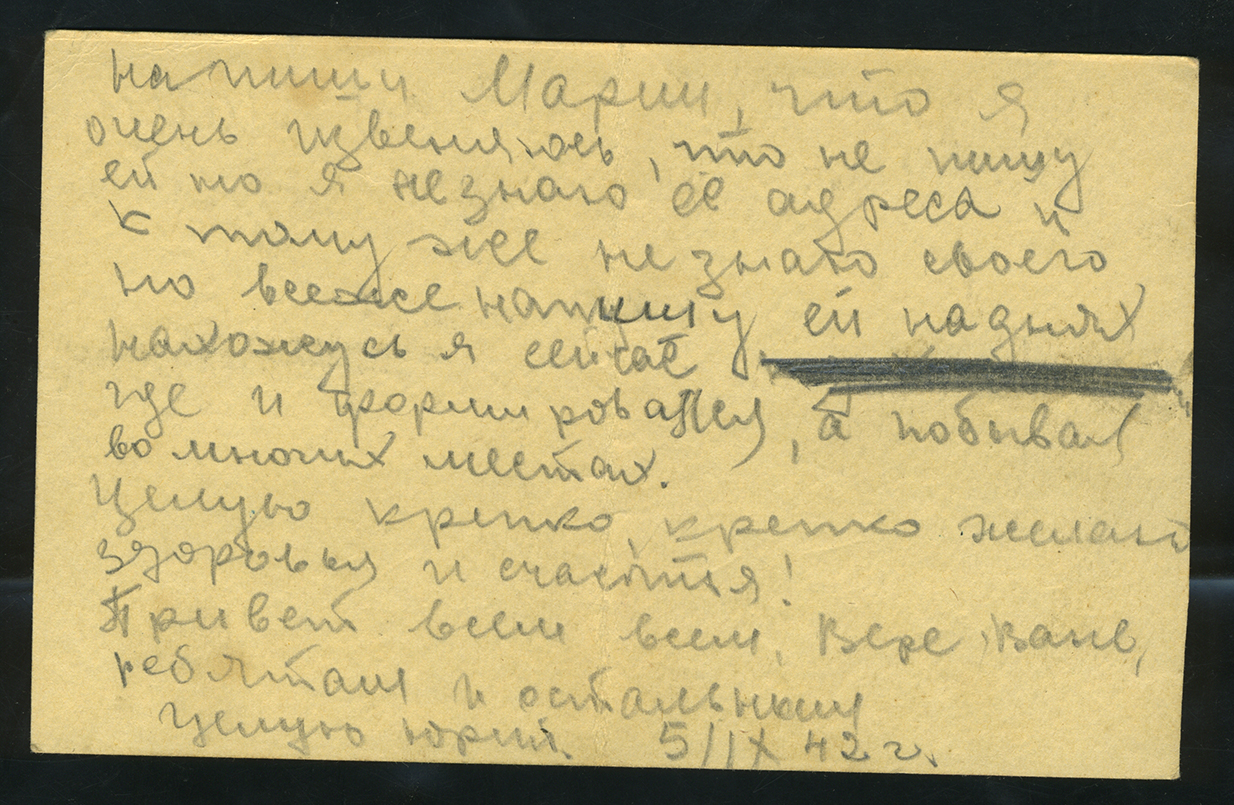 напиши Марии, что я
очень извеняюсь, что не пишу
ей но я незнаю её адреса и
к тому же не знаю своего
но всеже напишу ей наднях
нахожусь я сейчас
где и формировался, а побывал
во многих местах.
Целую крепко, крепко желаю
здоровья и счастья!
Привет всем всем, Вере Ване,
ребятам и остальным
Целую Юрий. 5/IX 42 г.